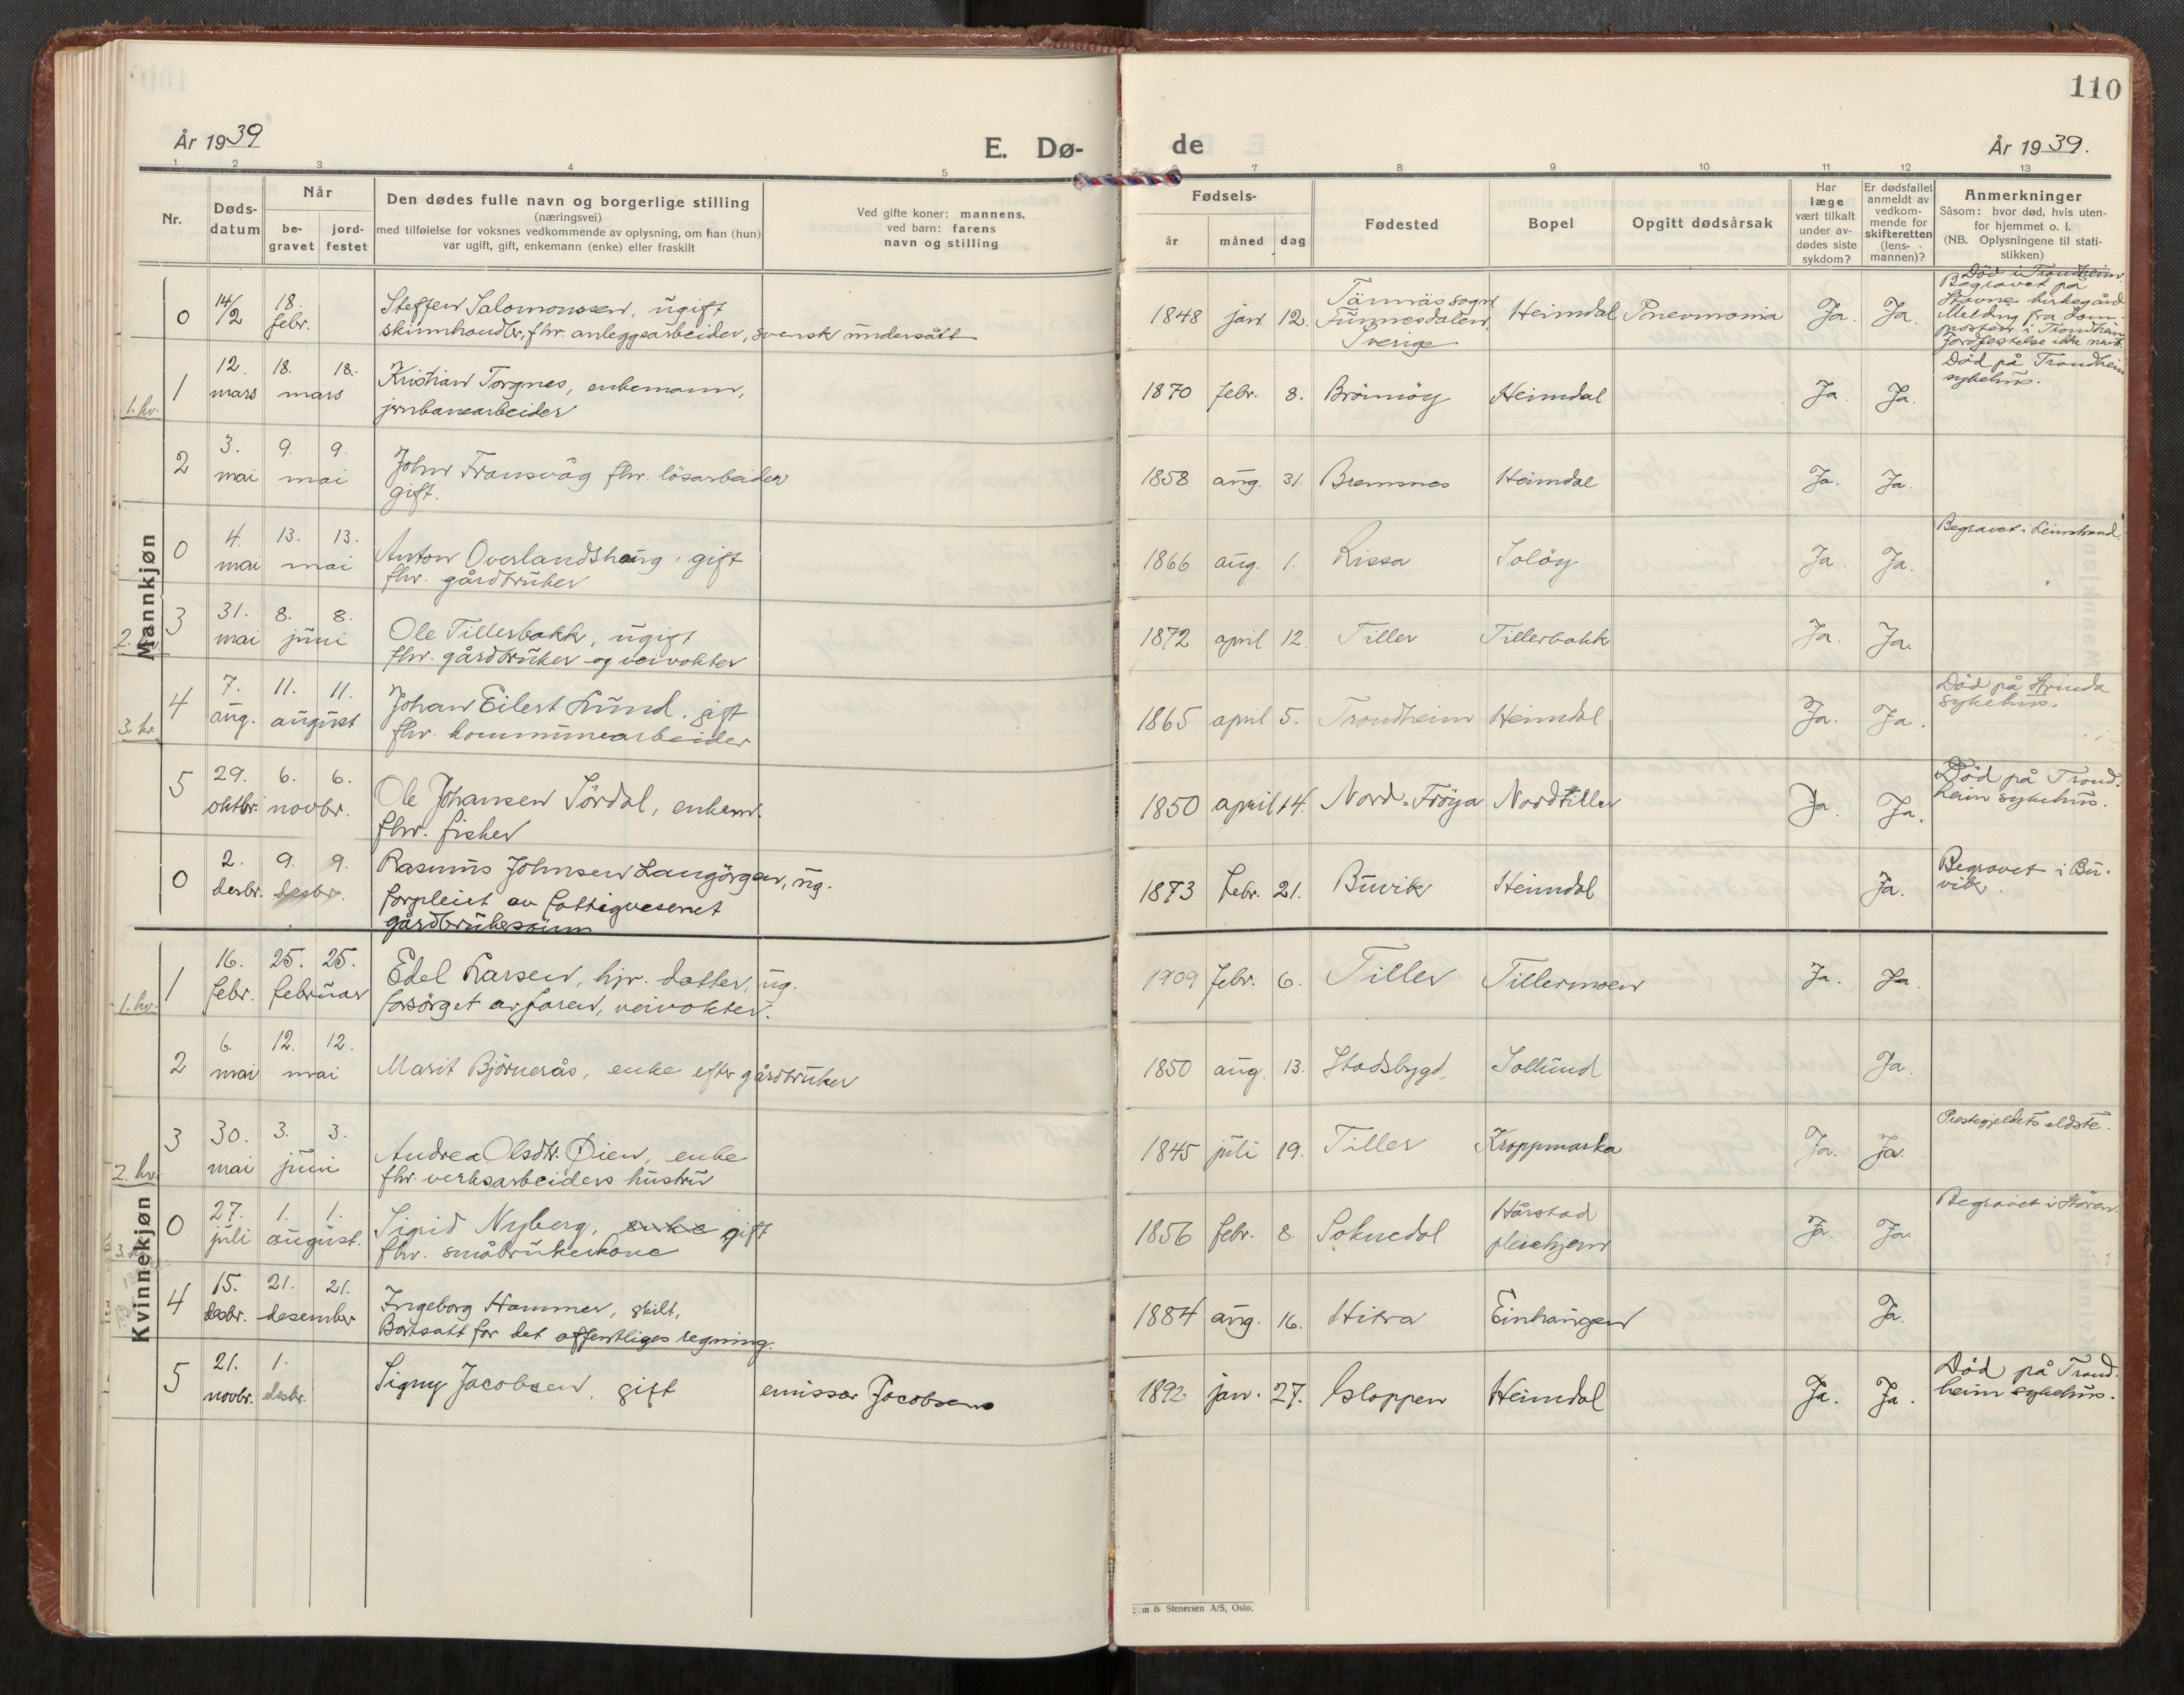 110
År 1939
E. Dø-
de
År 1939.
1 2 3 4 5
6 7 8 9 10 11 12 13
Nr.
Døds-
datum
Når
be-
gravet
jord-
festet
Den dødes fulle navn og borgerlige stilling
(næringsvei)
med tilføielse for voksnes vedkommende av oplysning, om han (hun)
var ugift, gift, enkemann (enke) eller fraskilt
Ved gifte koner: mannens,
ved barn: farens
navn og stilling
Fødsels-
år
måned
dag
Fødested
Bopel
Opgitt dødsårsak
Har
læge
vært tilkalt
under av-
dødes siste
sykdom?
Er dødsfallet
anmeldt av
vedkom-
mende for
skifteretten
(lens-
mannen)?
Anmerkninger
Såsom: hvor død, hvis uten-
for hjemmet o. l.
(NB. Oplysningene til stati-
stikken)
Mannkjøn
0 14/2 18. febr. Steffen Salomonssen, ugift
skinnhandler, fhv. anleggsarbeider, svensk undersått
1848 jan. 12. Tännäs sogn,
Funnesdalen,
Sverige
Heimdal Pneumonia Ja. Ja.
Död i Trondheim
Begravet på
Stavne kirkegård
Melding fra
i Trondheim
Jordfestelse ikke
1. kv.
1 12. mars 18. 18. mars Kristian Torgnes, enkemann,
jernbanearbeider
1870 febr. 8. Brönnöy Heimdal Ja Ja.
Död på Trondheim
sykehus.
2 3. mai 9. 9. mai John Fransvåg fhv. lösarbeider
gift.
1858 aug. 31. Bremsnes Heimdal Ja. Ja.
0 4. mai 13. 13. mai Anton Overlandshaug, gift
fhv. gårdbruker
1866 aug. 1. Rissa Soløy Ja Ja.
Begravet i Leinstrand.
2.
3 31. mai 8. 8. juni Ole Tillerbakk, ugift
fhv. gårdbruker og veivokter
1872 april 12. Tiller Tillerbakk Ja. Ja.
3. kv.
4 7. aug. 11. 11. august Johan Eilert Lund, gift
fhv. kommunearbeider
1865 april 5. Trondheim Heimdal Ja. Ja.
Död på Strinda
sykehus.
5 29. oktbr. 6. 6. novbr. Ole Johansen Sördal, enkem.
fhv. fisker
1850 april 14. Nord-Fröya Nordtiller Ja. Ja.
Död på Trond-
heim sykehus.
0 2. desbr. 9. 9. desbr. Rasmus Johnsen Langörgen, ug.
forpleiet av fattigvesenet
gårdbrukersönn
1873 febr. 21. Buvik Heimdal Ja.
Begravet i Bu-
vik.
Kvinnekjøn
1. kv.
1 16. febr. 25. 25. februar Edel Larsen, hjv. datter, ug.
forsörget av faren, veivokter.
1909 febr. 6. Tiller Tillermoen Ja. Ja.
2 6. mai 12. 12. mai Marit Björnerås, enke efter gårdbruker
1850 aug. 13. Stadsbygd, Sollund Ja.
2. kv.
3 30. mai 3. 3. juni Andrea Olsdtr. Øien, enke
fhv. verksarbeiders hustru
1845 juli 19. Tiller Kroppmarka Ja. Ja.
Prestegjeldets eldste.
3.
0 27. juli 1. 1. august. Sigrid Nyberg, enke gift
fhv. småbrukerkone
1856 febr. 8. Soknedal Hårstad
pleiehjem
Ja. Ja.
Begravet i Stören.
4 15. desbr. 21. 21. desember Ingeborg Hammer, skilt,
Bortsatt for det offentliges regning.
1884 aug. 16. Hitra Einhaugen Ja.
5 21. novbr. 1. desbr. Signy Jacobsen, gift emissær Jacobsen
1892 jan. 27. Gloppen Heimdal Ja. Ja.
Död på Trond-
heim sykehus.
& Stenersen A/S, Oslo.